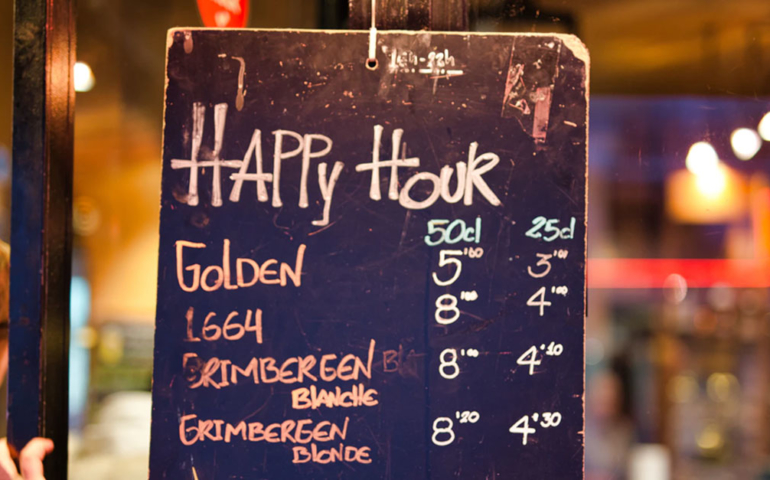 16h-22h
HAPPy HOUR
50cl 25cl
GOLDEN 5'00 3'00
1664 8'00 4'00
GRIMBERGEN 8'00 4'10
BLANCHE
GRIMBERGEN 8'20 4'30
BLONDE